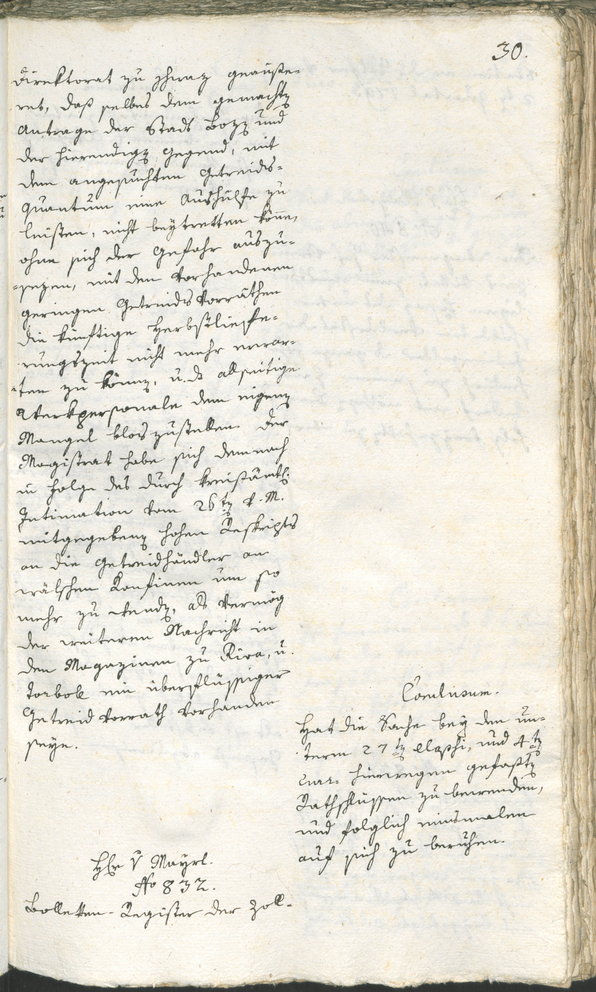 30.
Direktorat zu Schwaz geäuße-
ret, daß selbes dem gemachten
Antrage der Stadt Bozen und
der hierendigen Gegend, mit
dem angesuchten Getreids-
Quantum eine Aushülfe zu
leisten, nicht beytretten könne,
ohne sich der Gefahr auszu-
sezen, mit den vorhandenen
geringen Getreids Vorräthen
die künftige Herbstliefe-
rungszeit nicht mehr erwar-
ten zu können, u. das allseitige
Werkpersonale dem eigenen
Mangel bloszustellen. Der
Magistrat habe sich demnach
in Folge des durch kreisämtl.
Intimation vom 26ten v. M.
mitgegebenen hohen Reskripts
an die Getreidhändler an
wälschen Konfinen um so
mehr zu wenden, als vermög
der weiteren Nachricht in
den Magazinen zu Riva, u.
Torbole ein überflüssiger
Getreid Vorrath vorhanden
seye.
Conclusum.
Hat die Sache bey den un-
term 27ten elapsi, und 4ten
curr. hierwegen gefaßten
Rathschlüssen zu bewenden,
und folglich einsmalen
auf sich zu beruhen.
Hr v Mayrl.
No 832.
Bolleten-Register der Zoll-